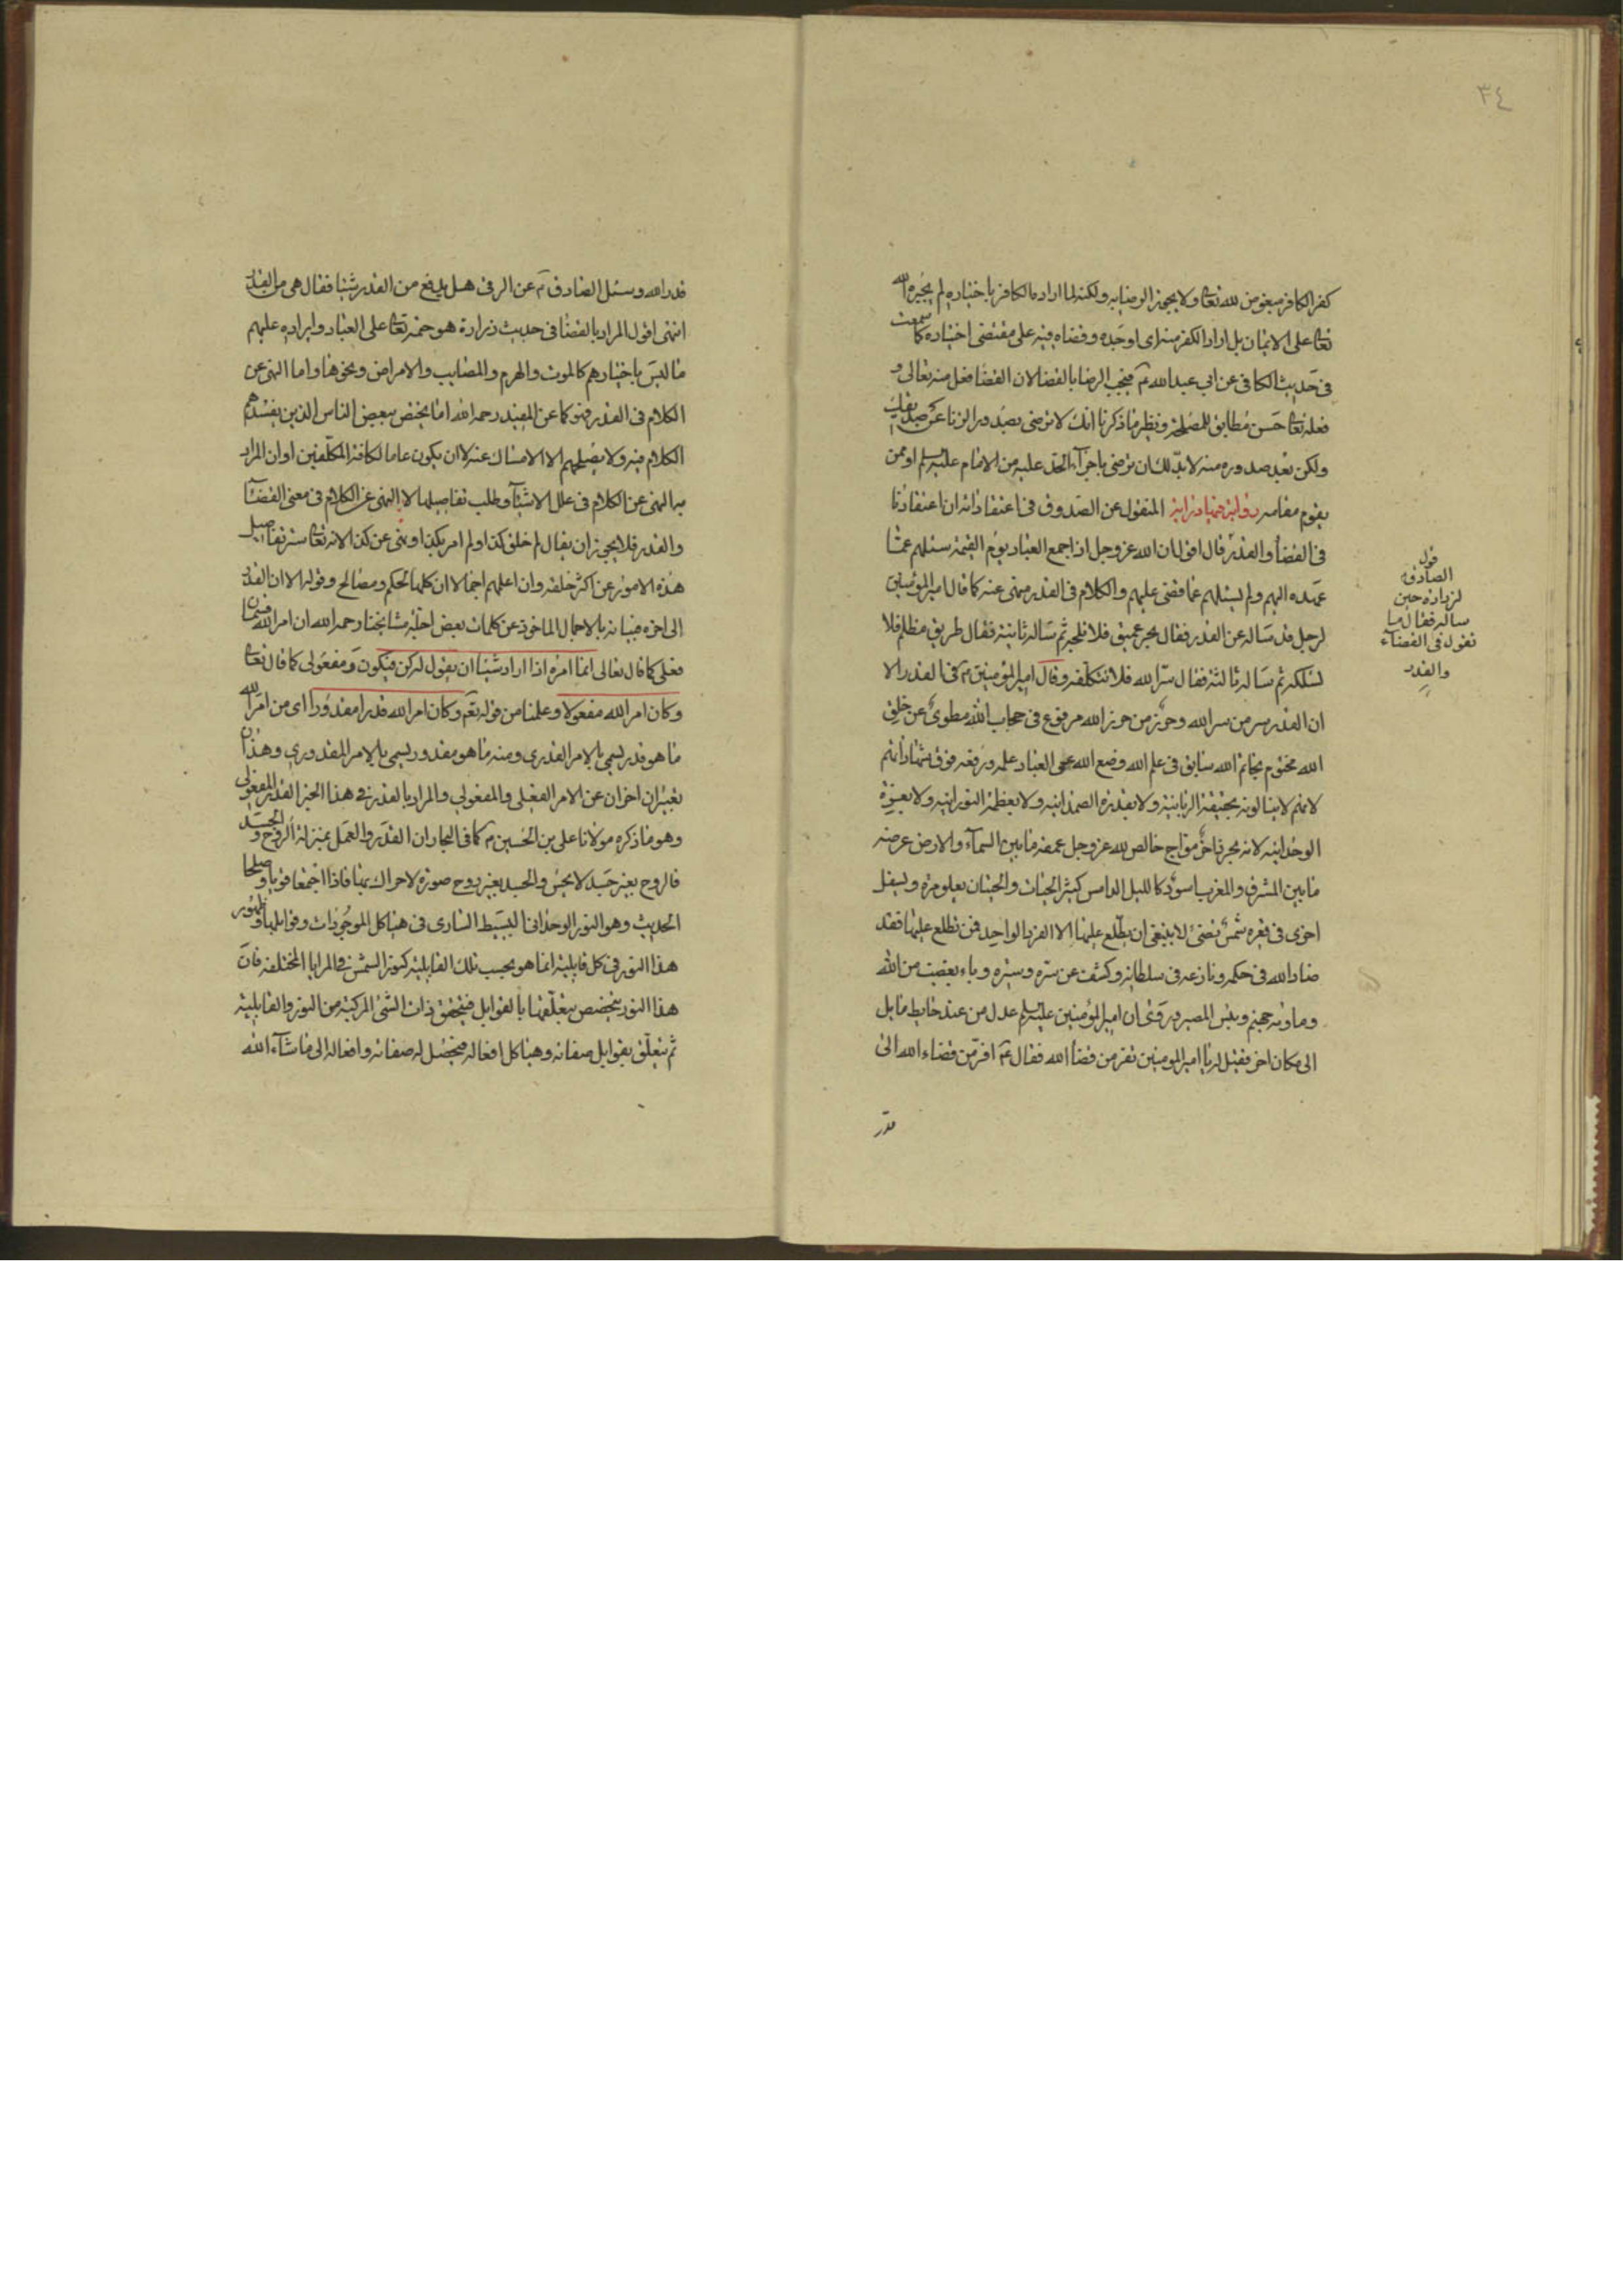 ٣٤
كفر الكافر مبغوض لله تعالى ولا يجوز الرضا به ولكنه لما اراد الكافر باختياره لم يجبره الله
تعالى على الايمان بل اراد الكفر منه اى اوجده وقضاه فيه على مقتضى اختياره كما سمعت
فى حديث الكافى عن ابى عبد الله ع فيجب الرضا بالقضا لان القضا فعل منه تعالى و
فعله تعالى حسن مطابق للمصلحة ونظير ما ذكرنا انك لا ترضى بصدور الزنا عن
ولكن بعد صدوره منه لا بد لك ان ترضى باجراء الحد عليه من الامام عليه السلم او ممن
يقوم مقامه المنقول عن الصدوق فى اعتقاداته ان اعتقادنا
فى القضا والقدر قال اقول ان الله عز وجل اذا جمع العباد يوم القيمة سئلهم عما
عهده اليهم ولم يسئلهم عما قضى عليهم والكلام فى القدر منهى عنه كما قال امير المؤمنين
لرجل قد ساله عن القدر فقال بحر عميق فلا تلجه ثم ساله ثانية فقال طريق مظلم فلا
تسلكه ثم ساله ثالثة فقال سر الله فلا تتكلفه وقال امير المؤمنين ع فى القدر الا
ان القدر سر من سر الله وحرز من حرز الله مرفوع فى حجاب الله مطوى عن خلق
الله مختوم بخاتم الله سابق فى علم الله وضع الله عن العباد علمه ورفعه فوق شهاداتهم
لانهم لا ينالونه بحقيقة الربانية ولا بقدرة الصمدانية ولا بعظمة النورانية ولا بعزة
الوحدانية لانه بحر زاخر مواج خالص لله عز وجل عمقه ما بين السماء والارض عرضه
ما بين المشرق والمغرب اسود كالليل الدامس كثير الحيات والحيتان يعلو مرة ويسفل
اخرى فى قعره شمس تضئ لا ينبغى ان يطلع عليها الا الفرد الواحد فمن تطلع عليها فقد
ضاد الله فى حكمه ونازعه فى سلطانه وكشف عن سره وستره وباء بغضب من الله
وماويه جهنم وبئس المصير وروى ان امير المؤمنين عليه السلم عدل من عند حايط مايل
الى مكان اخر فقيل له يا امير المومنين تفر من قضا الله فقال ع افر من قضاء الله الى
قدر
قول
الصادق
لزراره حين
ساله فقال ما
تقول فى القضاء
والقدر
قدر الله وسئل الصادق ع عن الرقى هل يدفع من القدر شيئا فقال هى من القدر
انتهى اقول المراد بالقضا فى حديث زرارة هو حتمه تعالى على العباد وايراده عليهم
ما ليس باختيارهم كالموت والهرم والمصايب والامراض ونحوها واما النهى عن
الكلام فى القدر فهو كما عن المفيد رحمه الله اما يختص ببعض الناس الذين يفسدهم
الكلام فيه ولا يصلحهم الا الامساك عنه لا ان يكون عاما لكافة المكلفين او ان المراد
به النهى عن الكلام فى علل الاشياء وطلب تفاصيلها لا النهى عن الكلام فى معنى القضاء
والقدر فلا يجوز ان يقال لم خلق كذا ولم امر بكذا ونهى عن كذا لانه تعالى ستر تفاصيل
هذه الامور عن اكثر خلقه وان اعلمهم اجمالا ان كلها لحكم ومصالح وقوله الا ان القدر
الى اخره فبيانه بالاجمال الماخوذ عن كلمات بعض اجلة مشايخنا رحمه الله ان امر الله قسمان
فعلى كما قال تعالى انما امره اذا اراد شيئا ان يقول له كن فيكون ومفعولى كما قال تعالى
وكان امر الله مفعولا وعلمنا من قوله تع وكان امر الله قدرا مقدورا اى من امر الله
ما هو قدر يسمى بالامر القدرى ومنه ما هو مقدور يسمى بالامر المقدورى وهذان
تعبيران اخران عن الامر الفعلى والمفعولى والمراد بالقدر فى هذا الخبر القدر المفعولى
وهو ما ذكره مولانا على بن الحسين ع كما فى البحار ان القدر والعمل بمنزلة الروح والجسد
فالروح بغير جسد لا يحس والجسد بغير روح صورة لا حراك بها فاذا اجتمعا قويا وصلحا
الحديث وهو النور الوحدانى البسيط السارى فى هياكل الموجودات وقوابلها وظهور
هذا النور فى كل قابلية انما هو بحسب تلك القابلية كنور الشمس فى المرايا المختلفة فان
هذا النور يتخصص بتعلقها بالقوابل فيتحقق ذات الشئ المركبة من النور والقابلية
ثم يتعلق بقوابل صفاته وهياكل افعاله فيحصل له صفاته وافعاله الى ما شاء الله